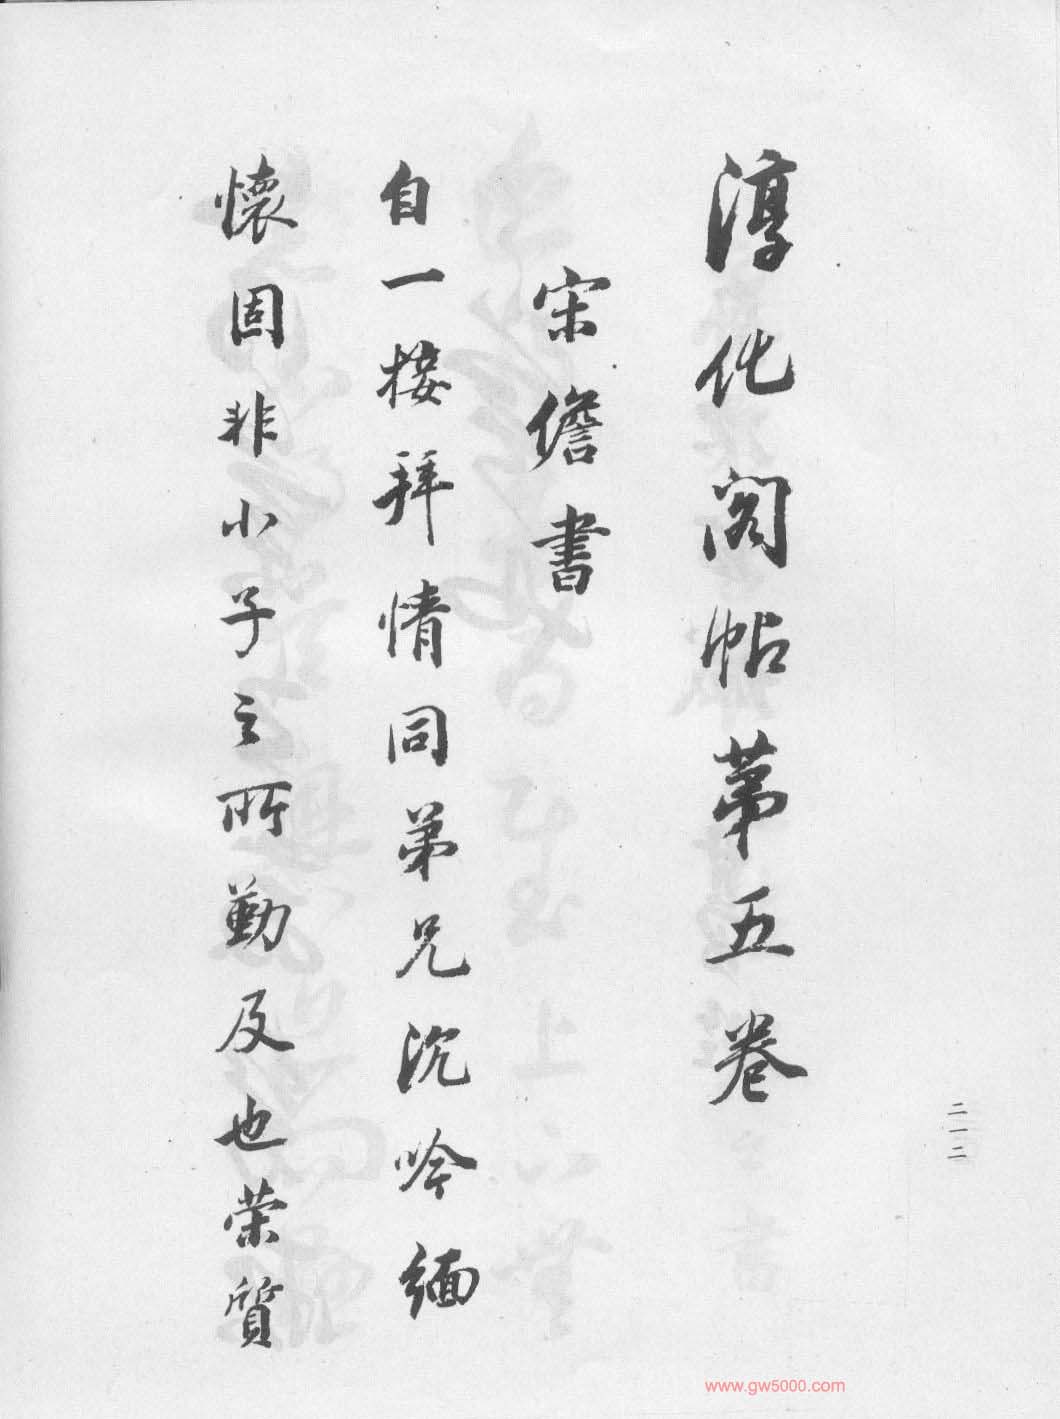 淳化阁帖第五卷
宋儋書
自一接拜情同弟兄沉吟緬
懷固非小子之所勤及也荣質
二一二
www.gw5000.com